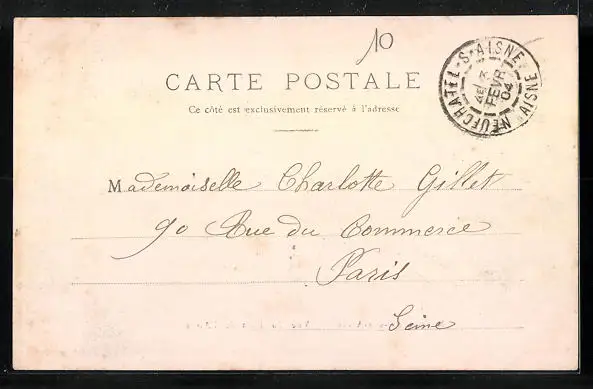 10
CARTE POSTALE
Ce côté est exclusivement réservé à l'adresse
NEUFCHATEL-S-AISNE AISNE
FEVR
04
Mademoiselle Charlotte Gillet
90 Rue du Commerce
Paris
Seine